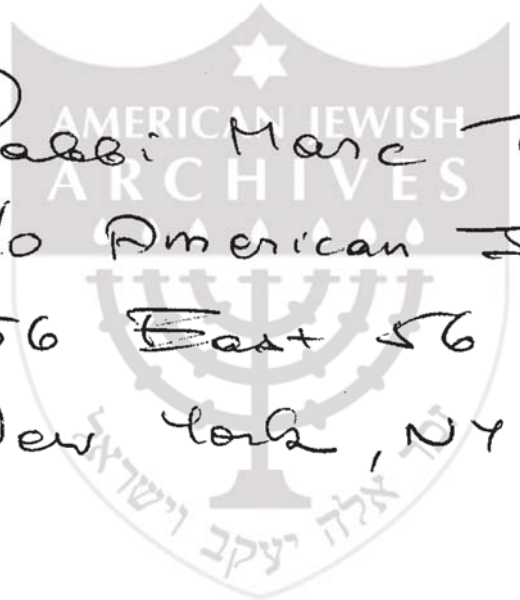 AMERICAN JEWISH
ARCHIVES
Rabbi Marc T
c/o American J
56 East 56
New York, NY
זכר אלה יעקב וישראל